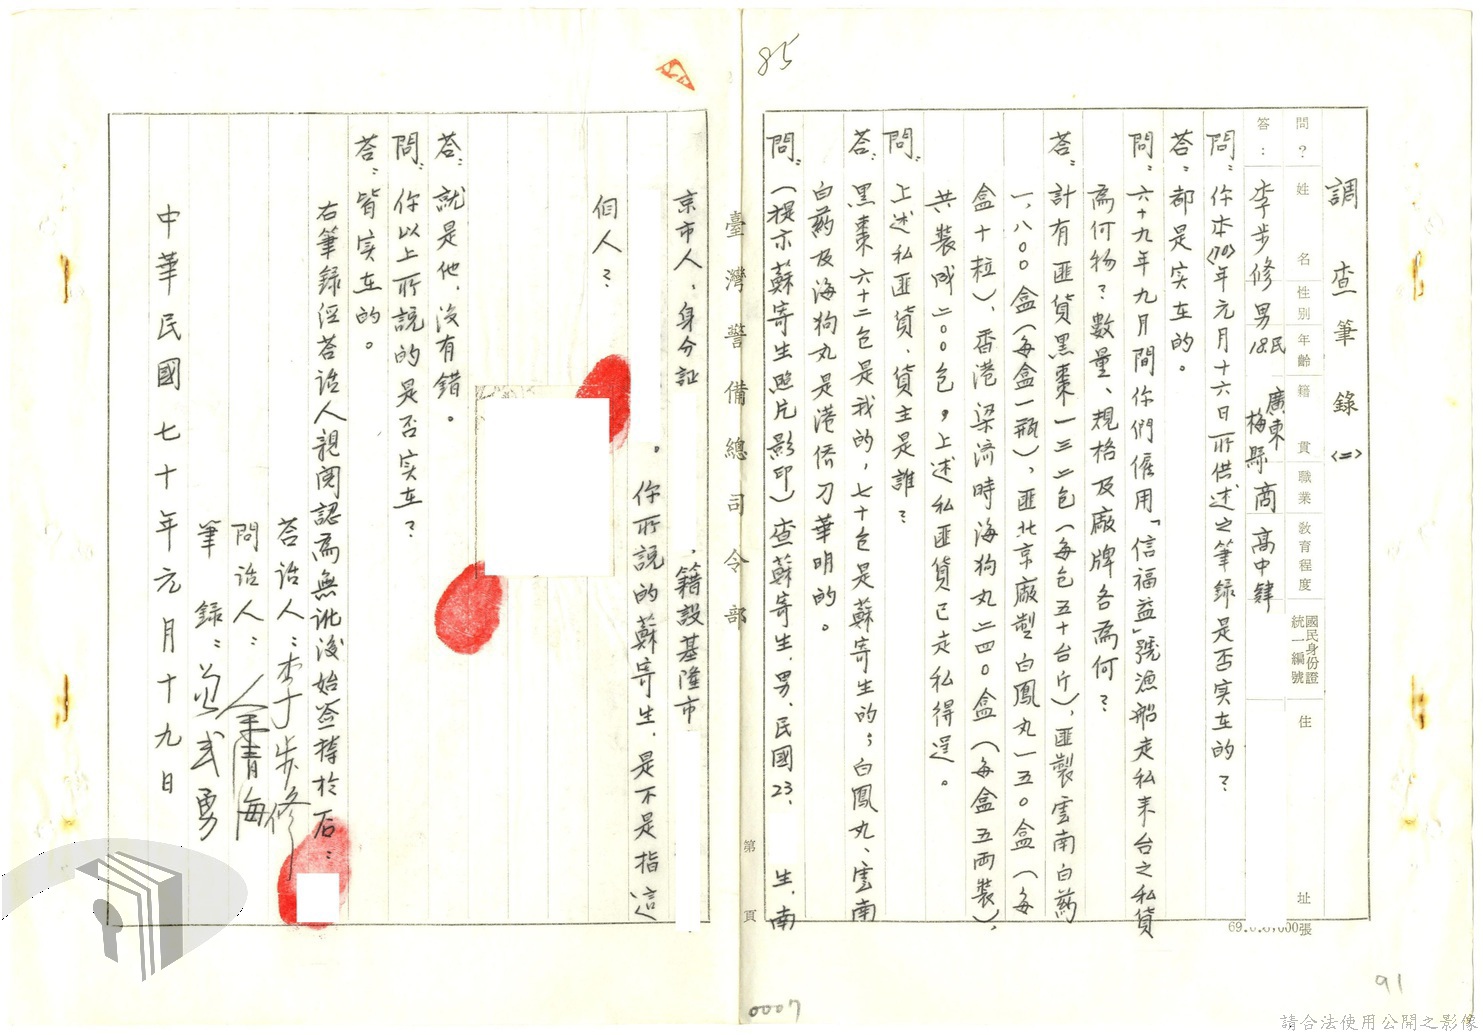 85
調查筆錄〈二〉
問？ 姓名 性別 年齡 籍貫 職業 教育程度 國民身份證統一編號 住址
答： 李步修 男 民18. 廣東梅縣 商 高中肄
問：你本〈70〉年元月十六日所供述之筆録是否实在的？
荅：都是实在的。
問：六十九年九月間你們僱用「信福益」號漁船走私来台之私貨
為何物？數量、規格及廠牌各為何？
荅：計有匪貨黑棗一三二包（每包五十台斤），匪製雲南白葯
一、八００盒（每盒一瓶），匪北京廠製白鳳丸一五０盒（每
盒十粒）、香港梁济時海狗丸二四０盒（每盒五両裝），
共裝成二００包，上述私匪貨已走私得逞。
問：上述私匪貨、貨主是誰？
荅：黑棗六十二包是我的，七十包是蘇寄生的；白鳳丸、雲南
白葯及海狗丸是港僑刀華明的。
問：（提示蘇寄生照片影印）查蘇寄生，男，民國23. 生，南
臺灣警備總司令部
第 頁
69.6.6,000張
京市人，身分証 ，籍設基隆市
。你所説的蘇寄生，是不是指這
個人？
荅：就是他，没有錯。
問：你以上所説的是否实在？
荅：皆实在的。
右筆録經荅話人親閱認為無訛後始簽捺於后：
荅話人：李步修
問話人：余清海
筆録：武勇
中華民國七十年元月十九日
0007
91
請合法使用公開之影像